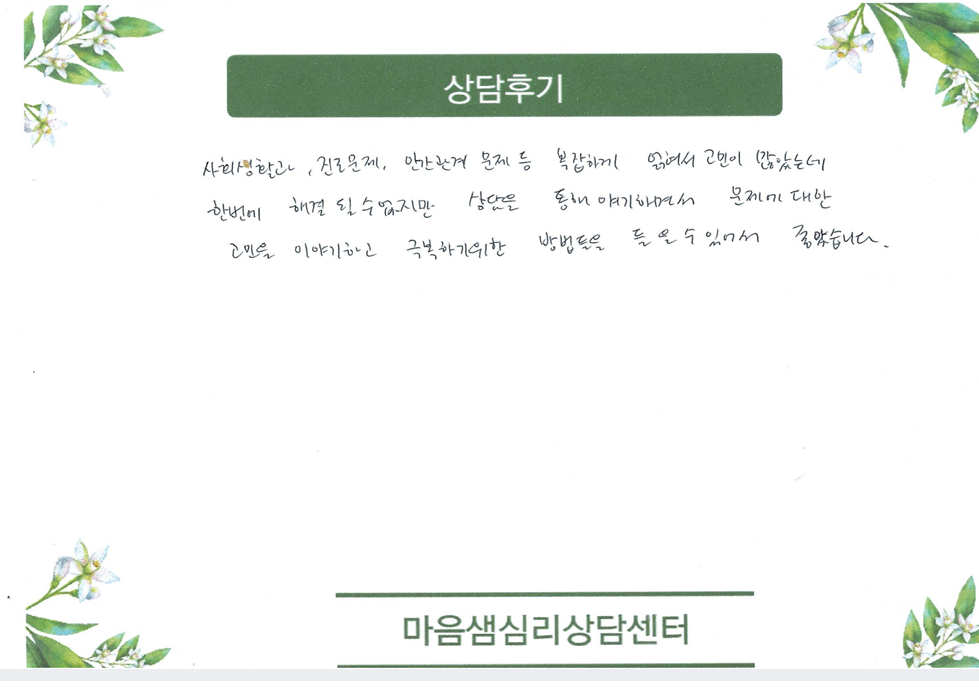 상담후기
사회생활과, 진로문제, 인간관계 문제 등 복잡하게 얽혀서 고민이 많았는데
한번에 해결 될 수 없지만 상담을 통해 얘기하면서 문제에 대한
고민을 이야기하고 극복하기위한 방법들을 들을 수 있어서 좋았습니다.
마음샘심리상담센터